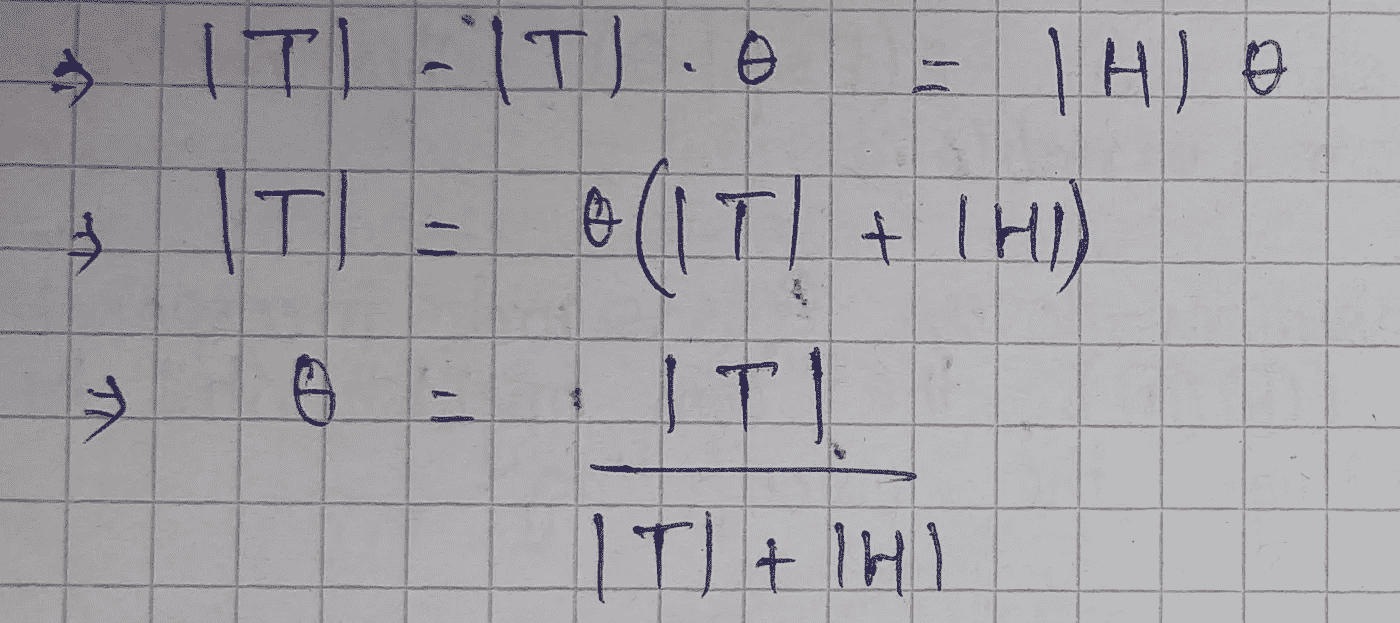 ⇒ |T| - |T| . θ = |H| θ
⇒ |T| = θ(|T| + |H|)
⇒ θ = |T|
|T| + |H|